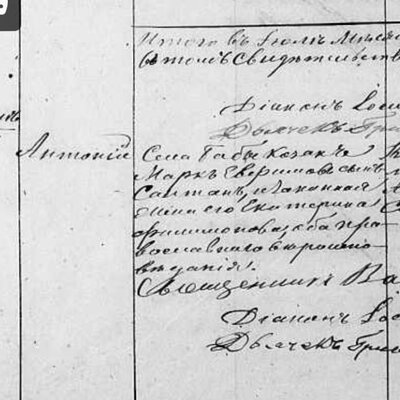 Итого въ Іюлѣ Мѣся
въ томъ Свидѣтельств
Діаконъ Іос
Дьячекъ Григ
Антоній
Села Бабы Козакъ
Марко Евфимовъ сынъ
и законная
жена его Екатерина
Филимонова, оба пра-
вославнаго вѣроиспо-
вѣданія.
Священникъ Ва
Діаконъ Іос
Дьячекъ Григ